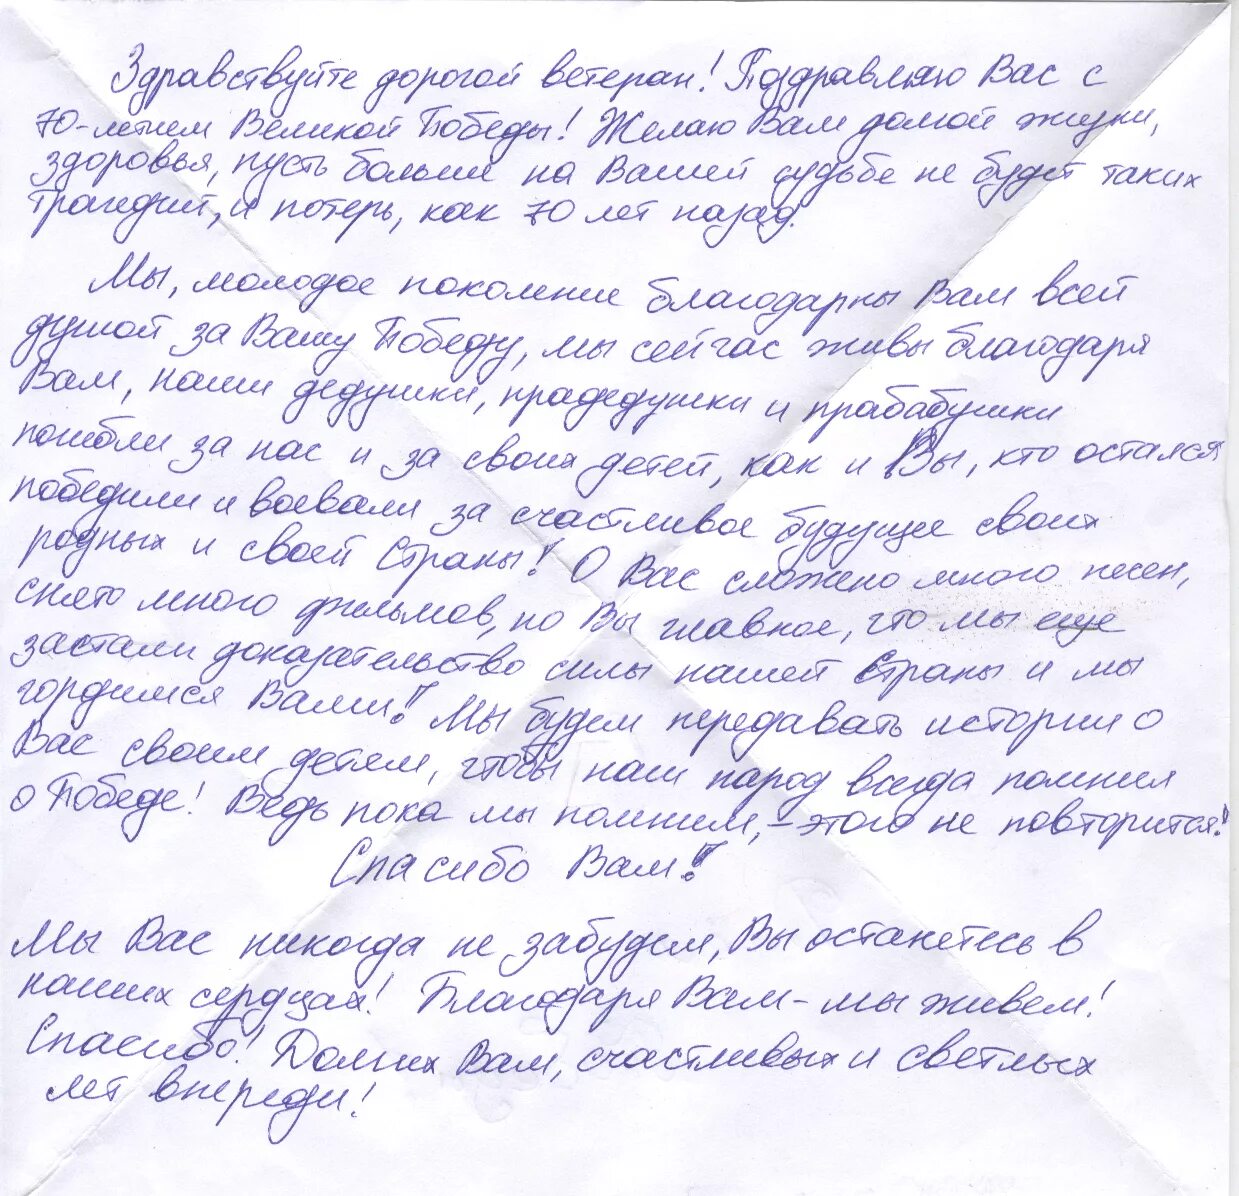 Здравствуйте дорогой ветеран! Поздравляю Вас с
70-летием Великой Победы! Желаю Вам долгой жизни,
здоровья, пусть больше на Вашей судьбе не будет таких
трагедий, и потерь, как 70 лет назад.
Мы, молодое поколение благодарны Вам всей
душой за Вашу Победу, мы сейчас живы благодаря
Вам, наши дедушки, прадедушки и прабабушки
погибли за нас и за своих детей, как и Вы, кто остался
победили и воевали за счастливое будущее своих
родных и своей Страны! О Вас сложено много песен,
снято много фильмов, но Вы главное, что мы еще
застали доказательство силы нашей Страны и мы
гордимся Вами! Мы будем передавать истории о
Вас своим детям, чтобы наш народ всегда помнил
о Победе! Ведь пока мы помним, - этого не повторится!
Спасибо Вам!
Мы Вас никогда не забудем, Вы останетесь в
наших сердцах! Благодаря Вам - мы живем!
Спасибо! Долгих Вам, счастливых и светлых
лет впереди!